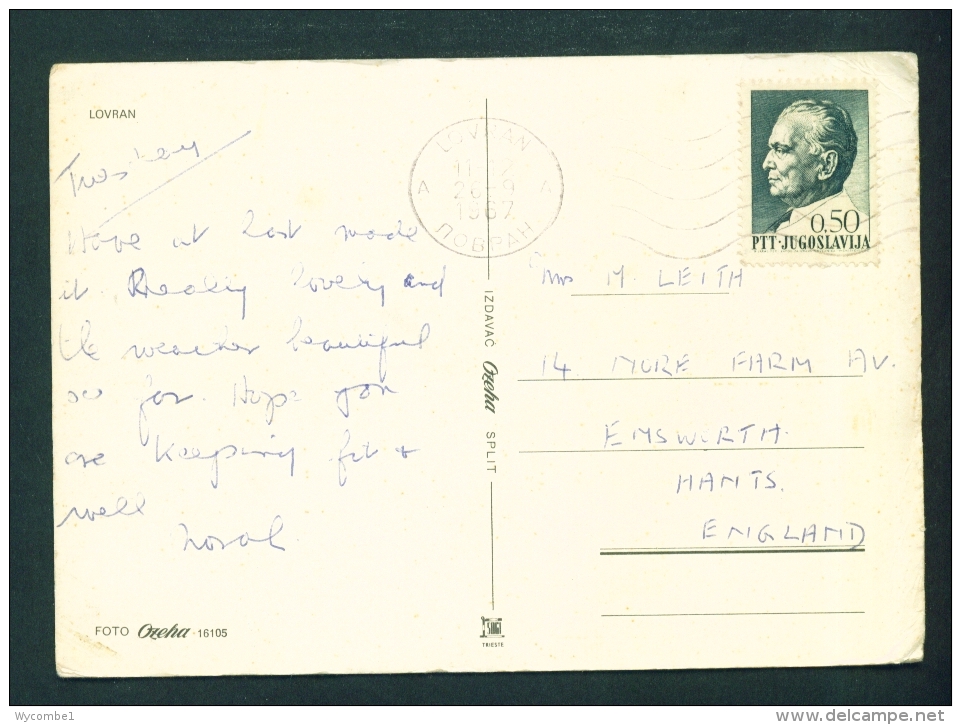 LOVRAN
Tuesday
Have at last made
it. Really lovely and
the weather beautiful
so far. Hope you
are keeping fit &
well
LOVRAN
26-9
1967
ЛОВРАН
A A
0,50
PTT·JUGOSLAVIJA
Mrs M. LEITH
14 MORE FARM AV.
EMSWORTH
HANTS.
ENGLAND
IZDAVAČ Ozeha SPLIT
FOTO Ozeha 16105
TRIESTE
Wycombe1
www.delcampe.net